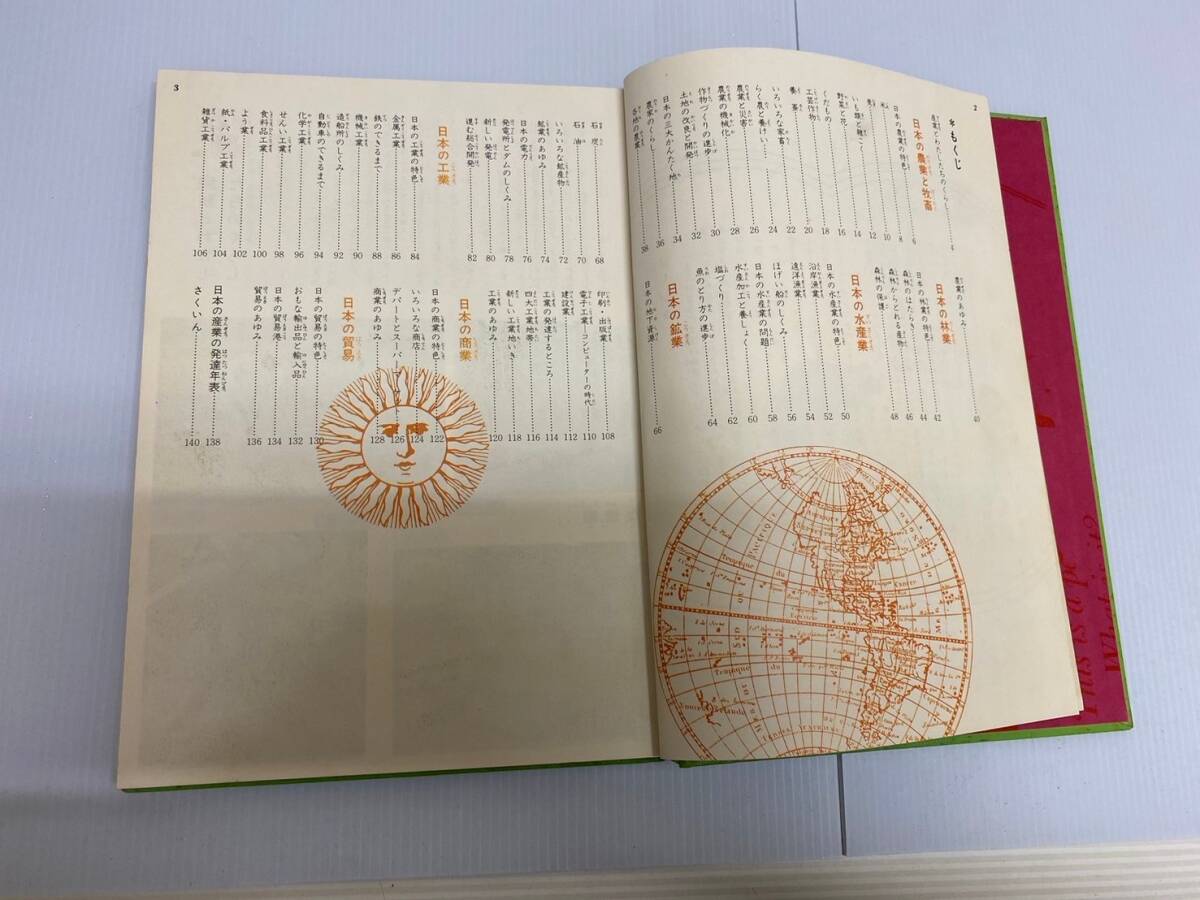 2
＊もくじ
産業とわたしたちのくらし……4
日本の農業と牧畜
日本の農業の特色……8
米……10
麦……12
いも類と雑こく……14
野菜と花……16
くだもの……18
工芸作物……20
養蚕……22
いろいろな家畜……24
らく農と養けい……26
農業と災害……28
農業の機械化……30
作物づくりの進歩……32
土地の改良と開発……34
日本の三大かんたく地
農家のくらし……36
各地の農業……38
農業のあゆみ……40
日本の林業
日本の林業の特色……42
森林のはたらき……44
森林からとれる産物……46
森林の保護……48
日本の水産業
日本の水産業の特色……50
沿岸漁業……52
遠洋漁業……54
ほげい船のしくみ……56
日本の水産業の問題……58
水産加工と養しょく……60
塩づくり……62
魚のとり方の進歩……64
日本の鉱業
日本の地下資源……66
3
石炭……68
石油……70
いろいろな鉱産物……72
鉱業のあゆみ……74
日本の電力……76
発電所とダムのしくみ……78
新しい発電……80
進む総合開発……82
日本の工業
日本の工業の特色……84
金属工業……86
鉄のできるまで……88
機械工業……90
造船所のしくみ……92
自動車のできるまで……94
化学工業……96
せんい工業……98
食料品工業……100
よう業……102
紙・パルプ工業……104
雑貨工業……106
印刷・出版業……108
電子工業—コンピューターの時代……110
建設業……112
工業の発達するところ……114
四大工業地帯……116
新しい工業地いき……118
工業のあゆみ……120
日本の商業
日本の商業の特色……122
いろいろな商店……124
デパートとスーパーマーケット……126
商業のあゆみ……128
日本の貿易
日本の貿易の特色……130
おもな輸出品と輸入品……132
日本の貿易港……134
貿易のあゆみ……136
日本の産業の発達年表……138
さくいん……140
Tropique du
Tropique du
This is a pe
What is it?